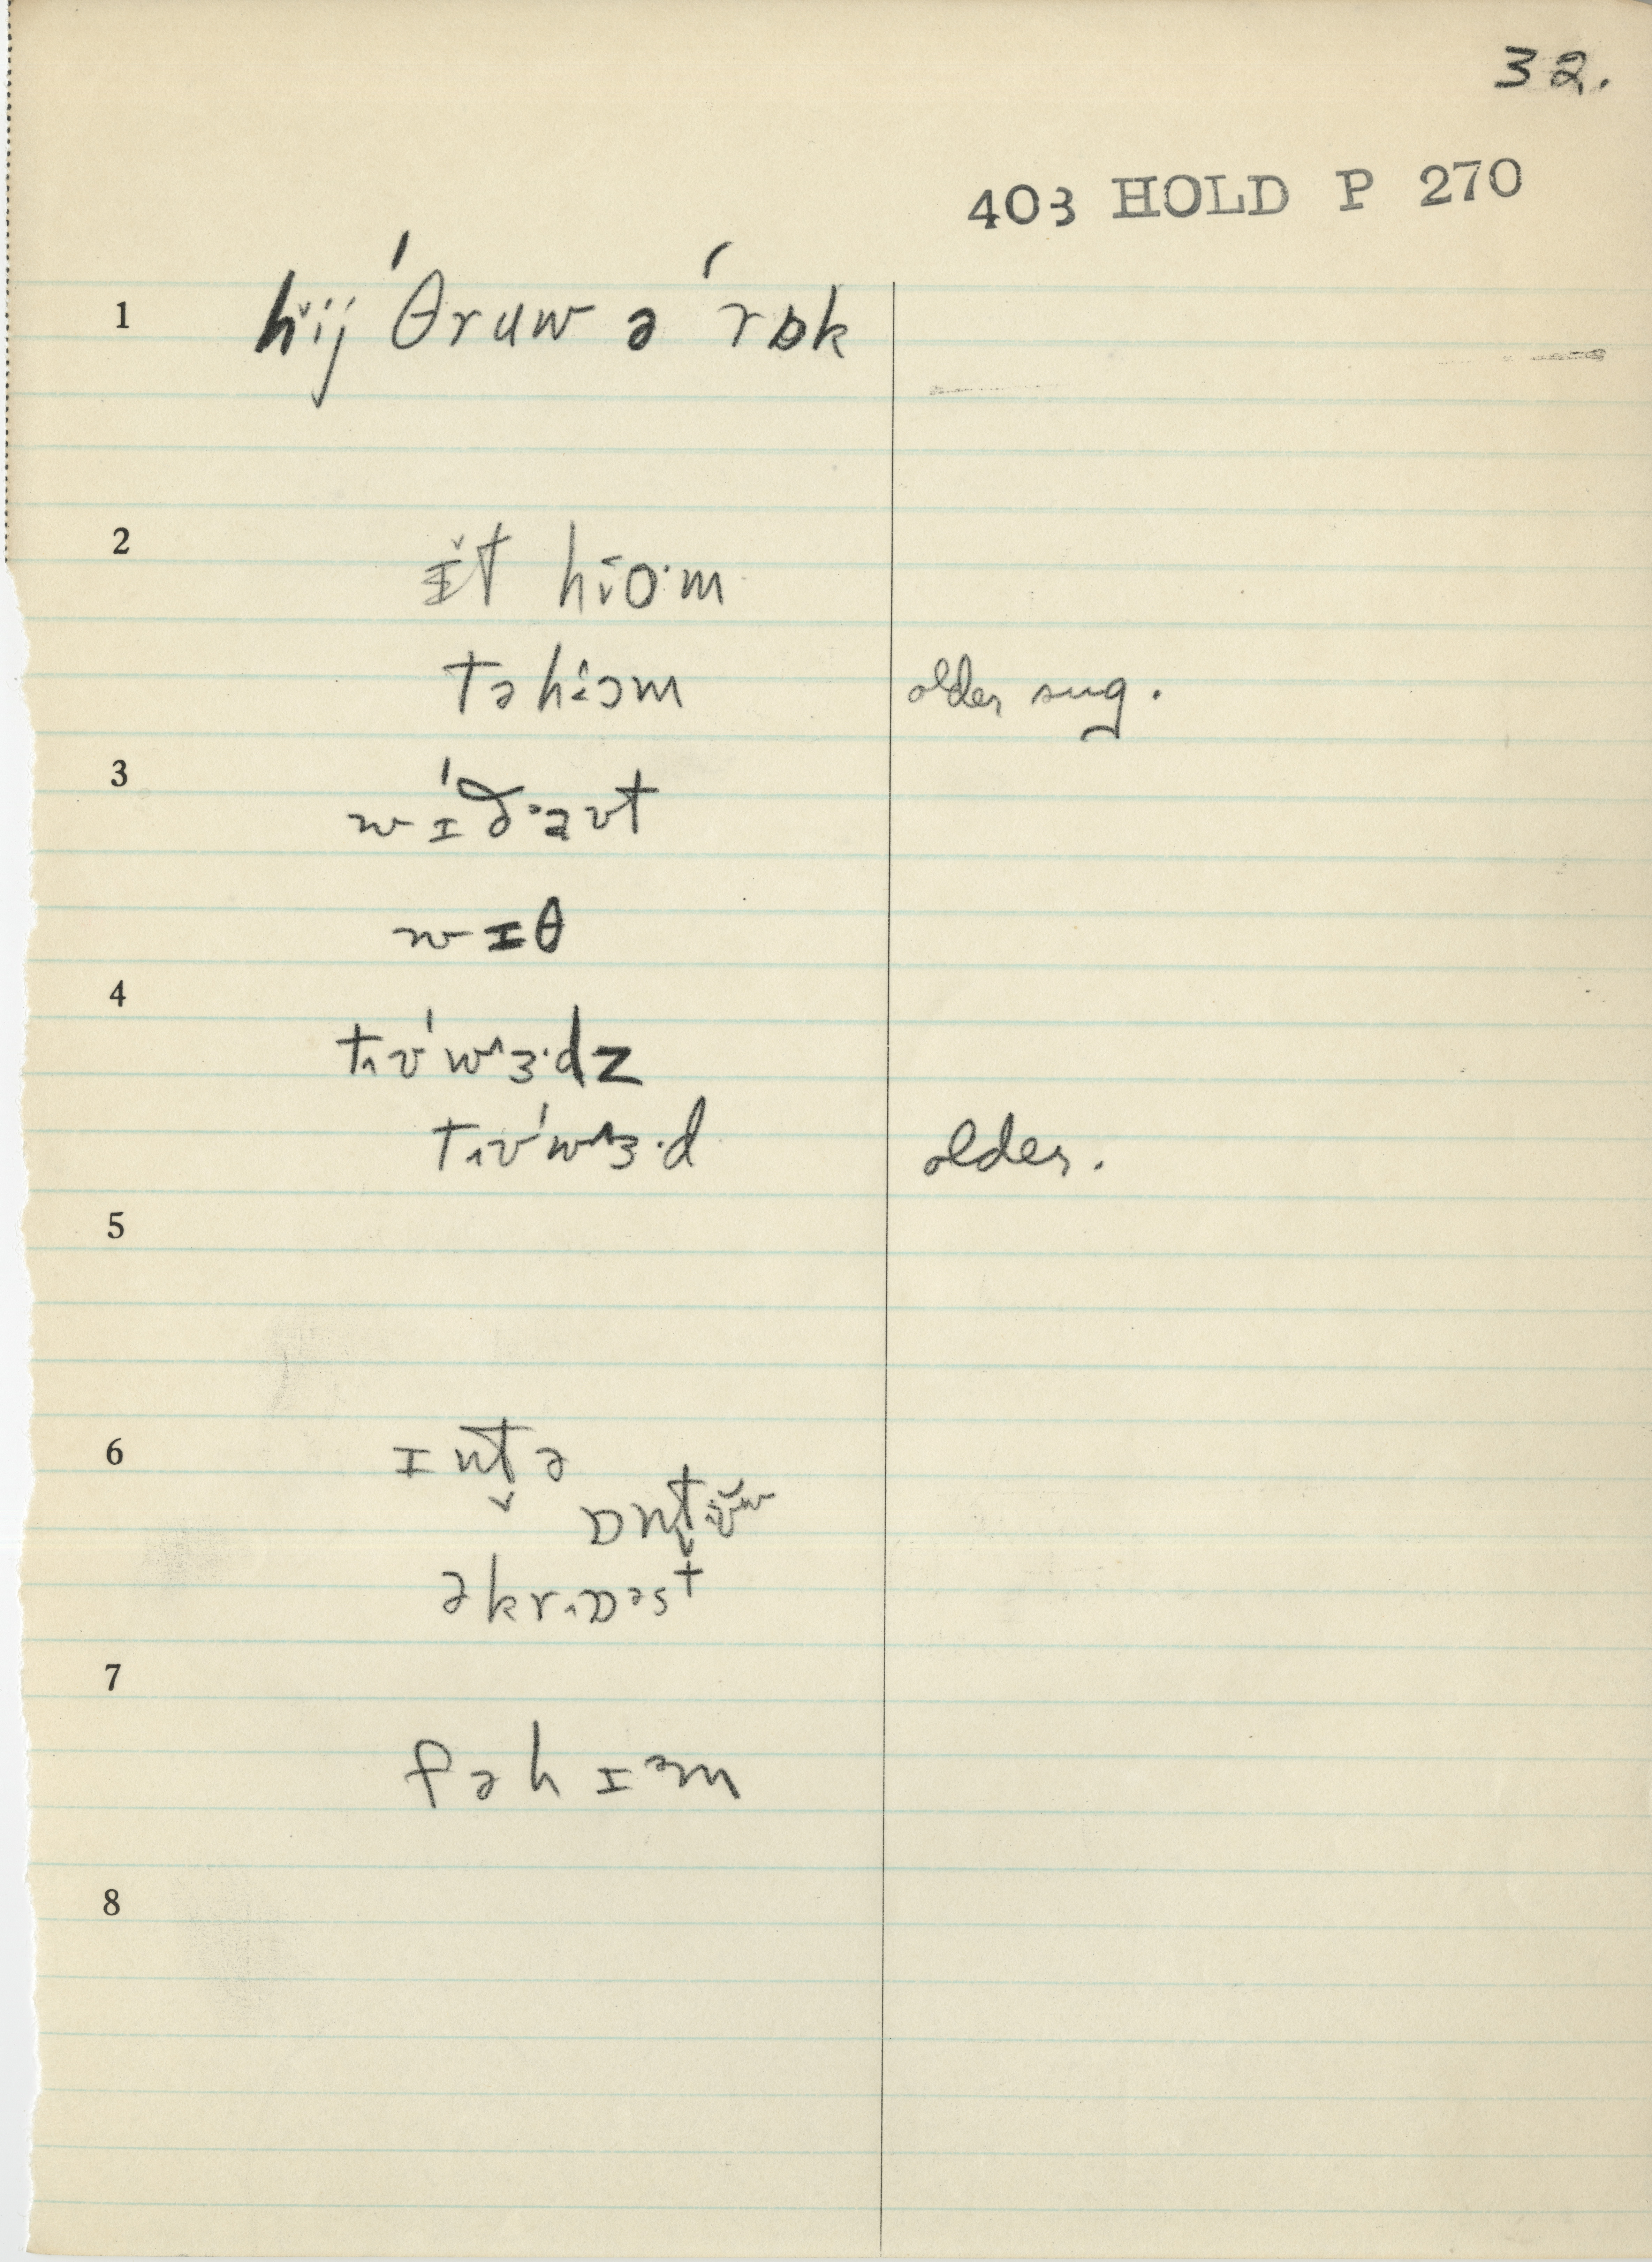 32.
403 HOLD P 270
1 hij ˈθruw ə ˈrɒk
2 ɪ̆t hio·m
təhiəm older sug.
3 wɪˈð·aʊt
wɪθ
4 tʊˈwɜ·dz
tʊˈwɜ·d older.
5
6 ɪnt̬ə
ɒnt̬ʊw
əkrɒəst
7
fəhɪəm
8